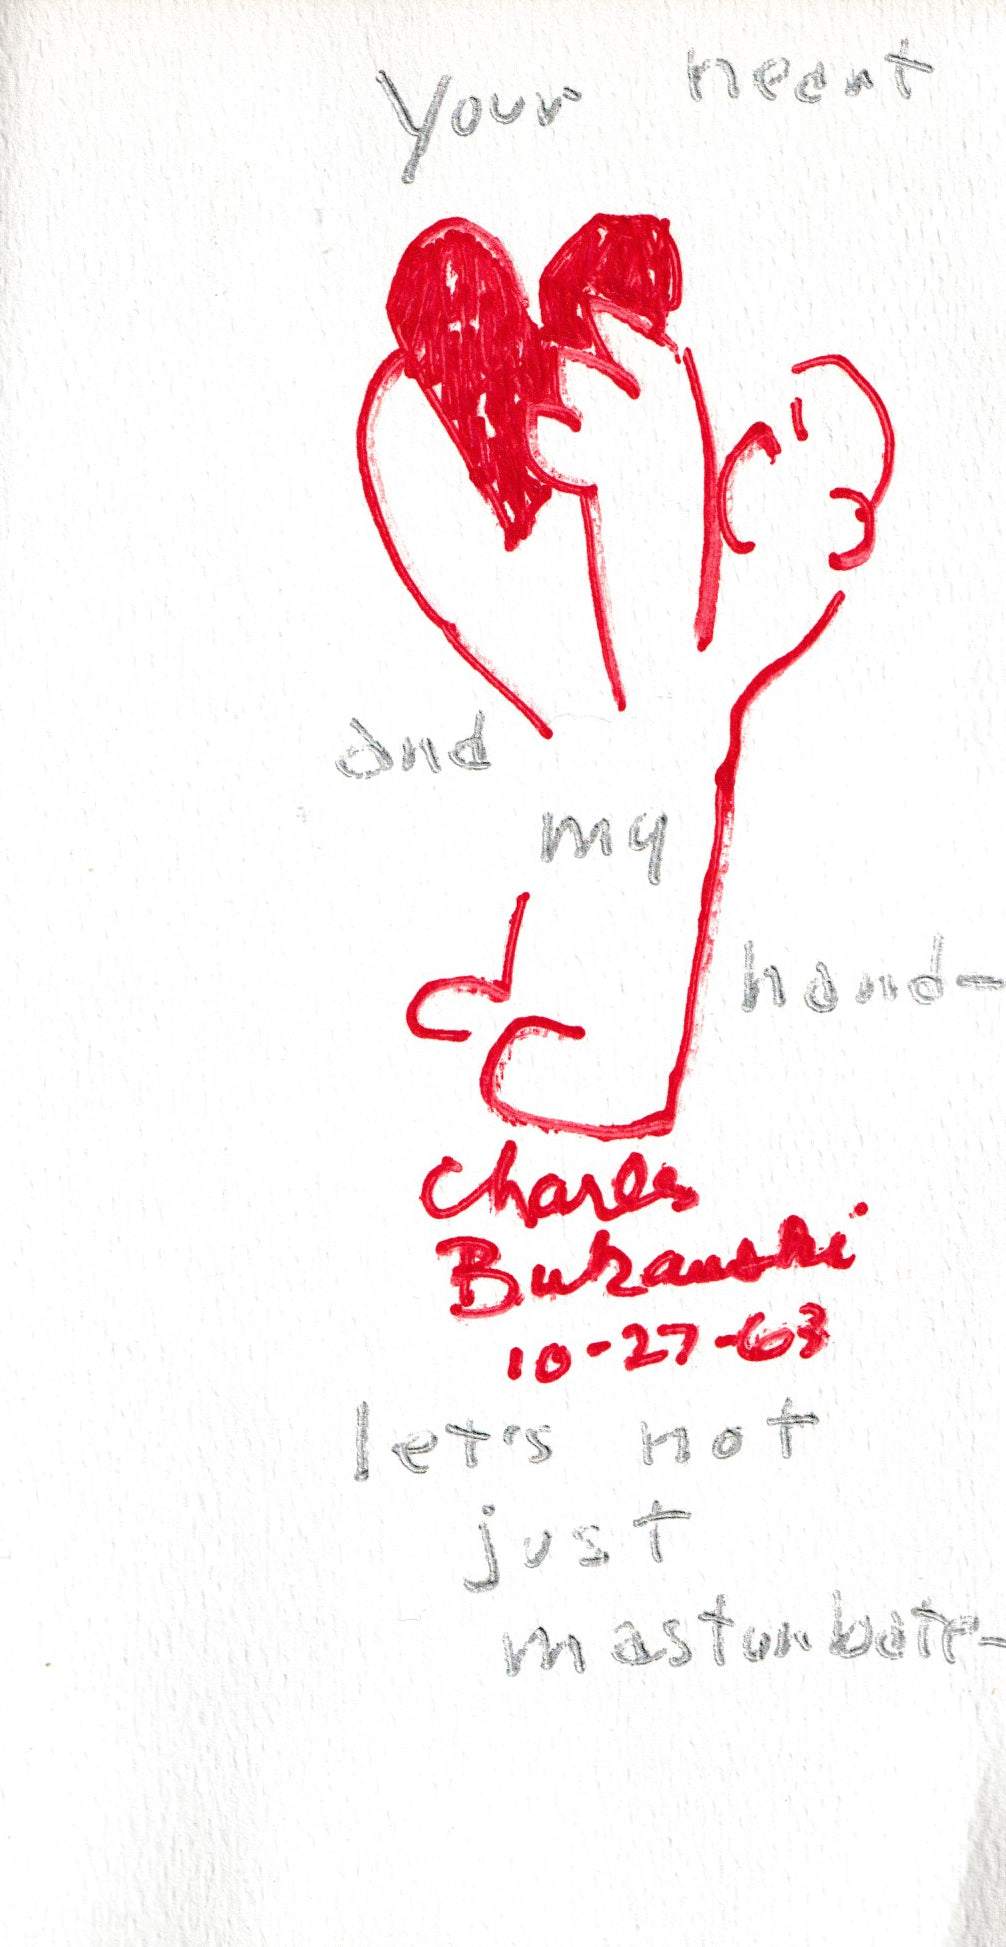 your heart
and
my
hand-
Charles
Bukowski
10-27-63
let's not
just
masturbate-